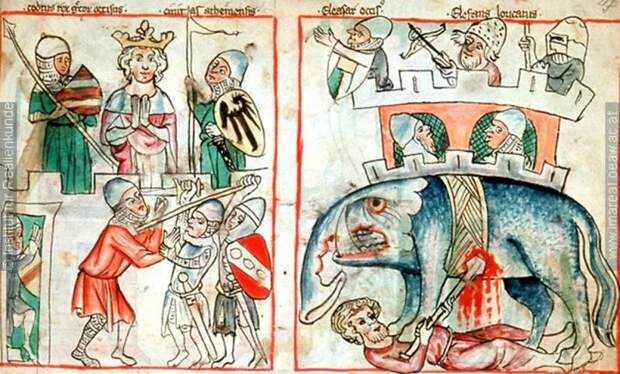 codrus rex grecor occisus
civitas atheniensis
Eleasar
Elefans loricatus
© Institut für Realienkunde
www.imareal.oeaw.ac.at